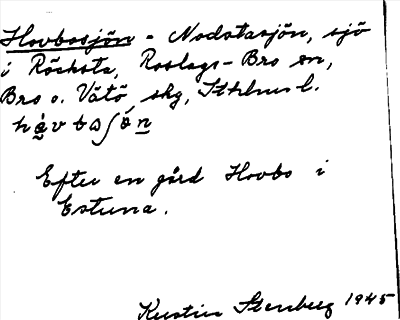 Hovbosjön - Nodstasjön, sjö
i Röcksta, Roslags-Bro sn,
Bro o. Vätö skg, Sthlms l.
Efter en gård Hovbo i
Estuna.
Kerstin Stenberg 1945